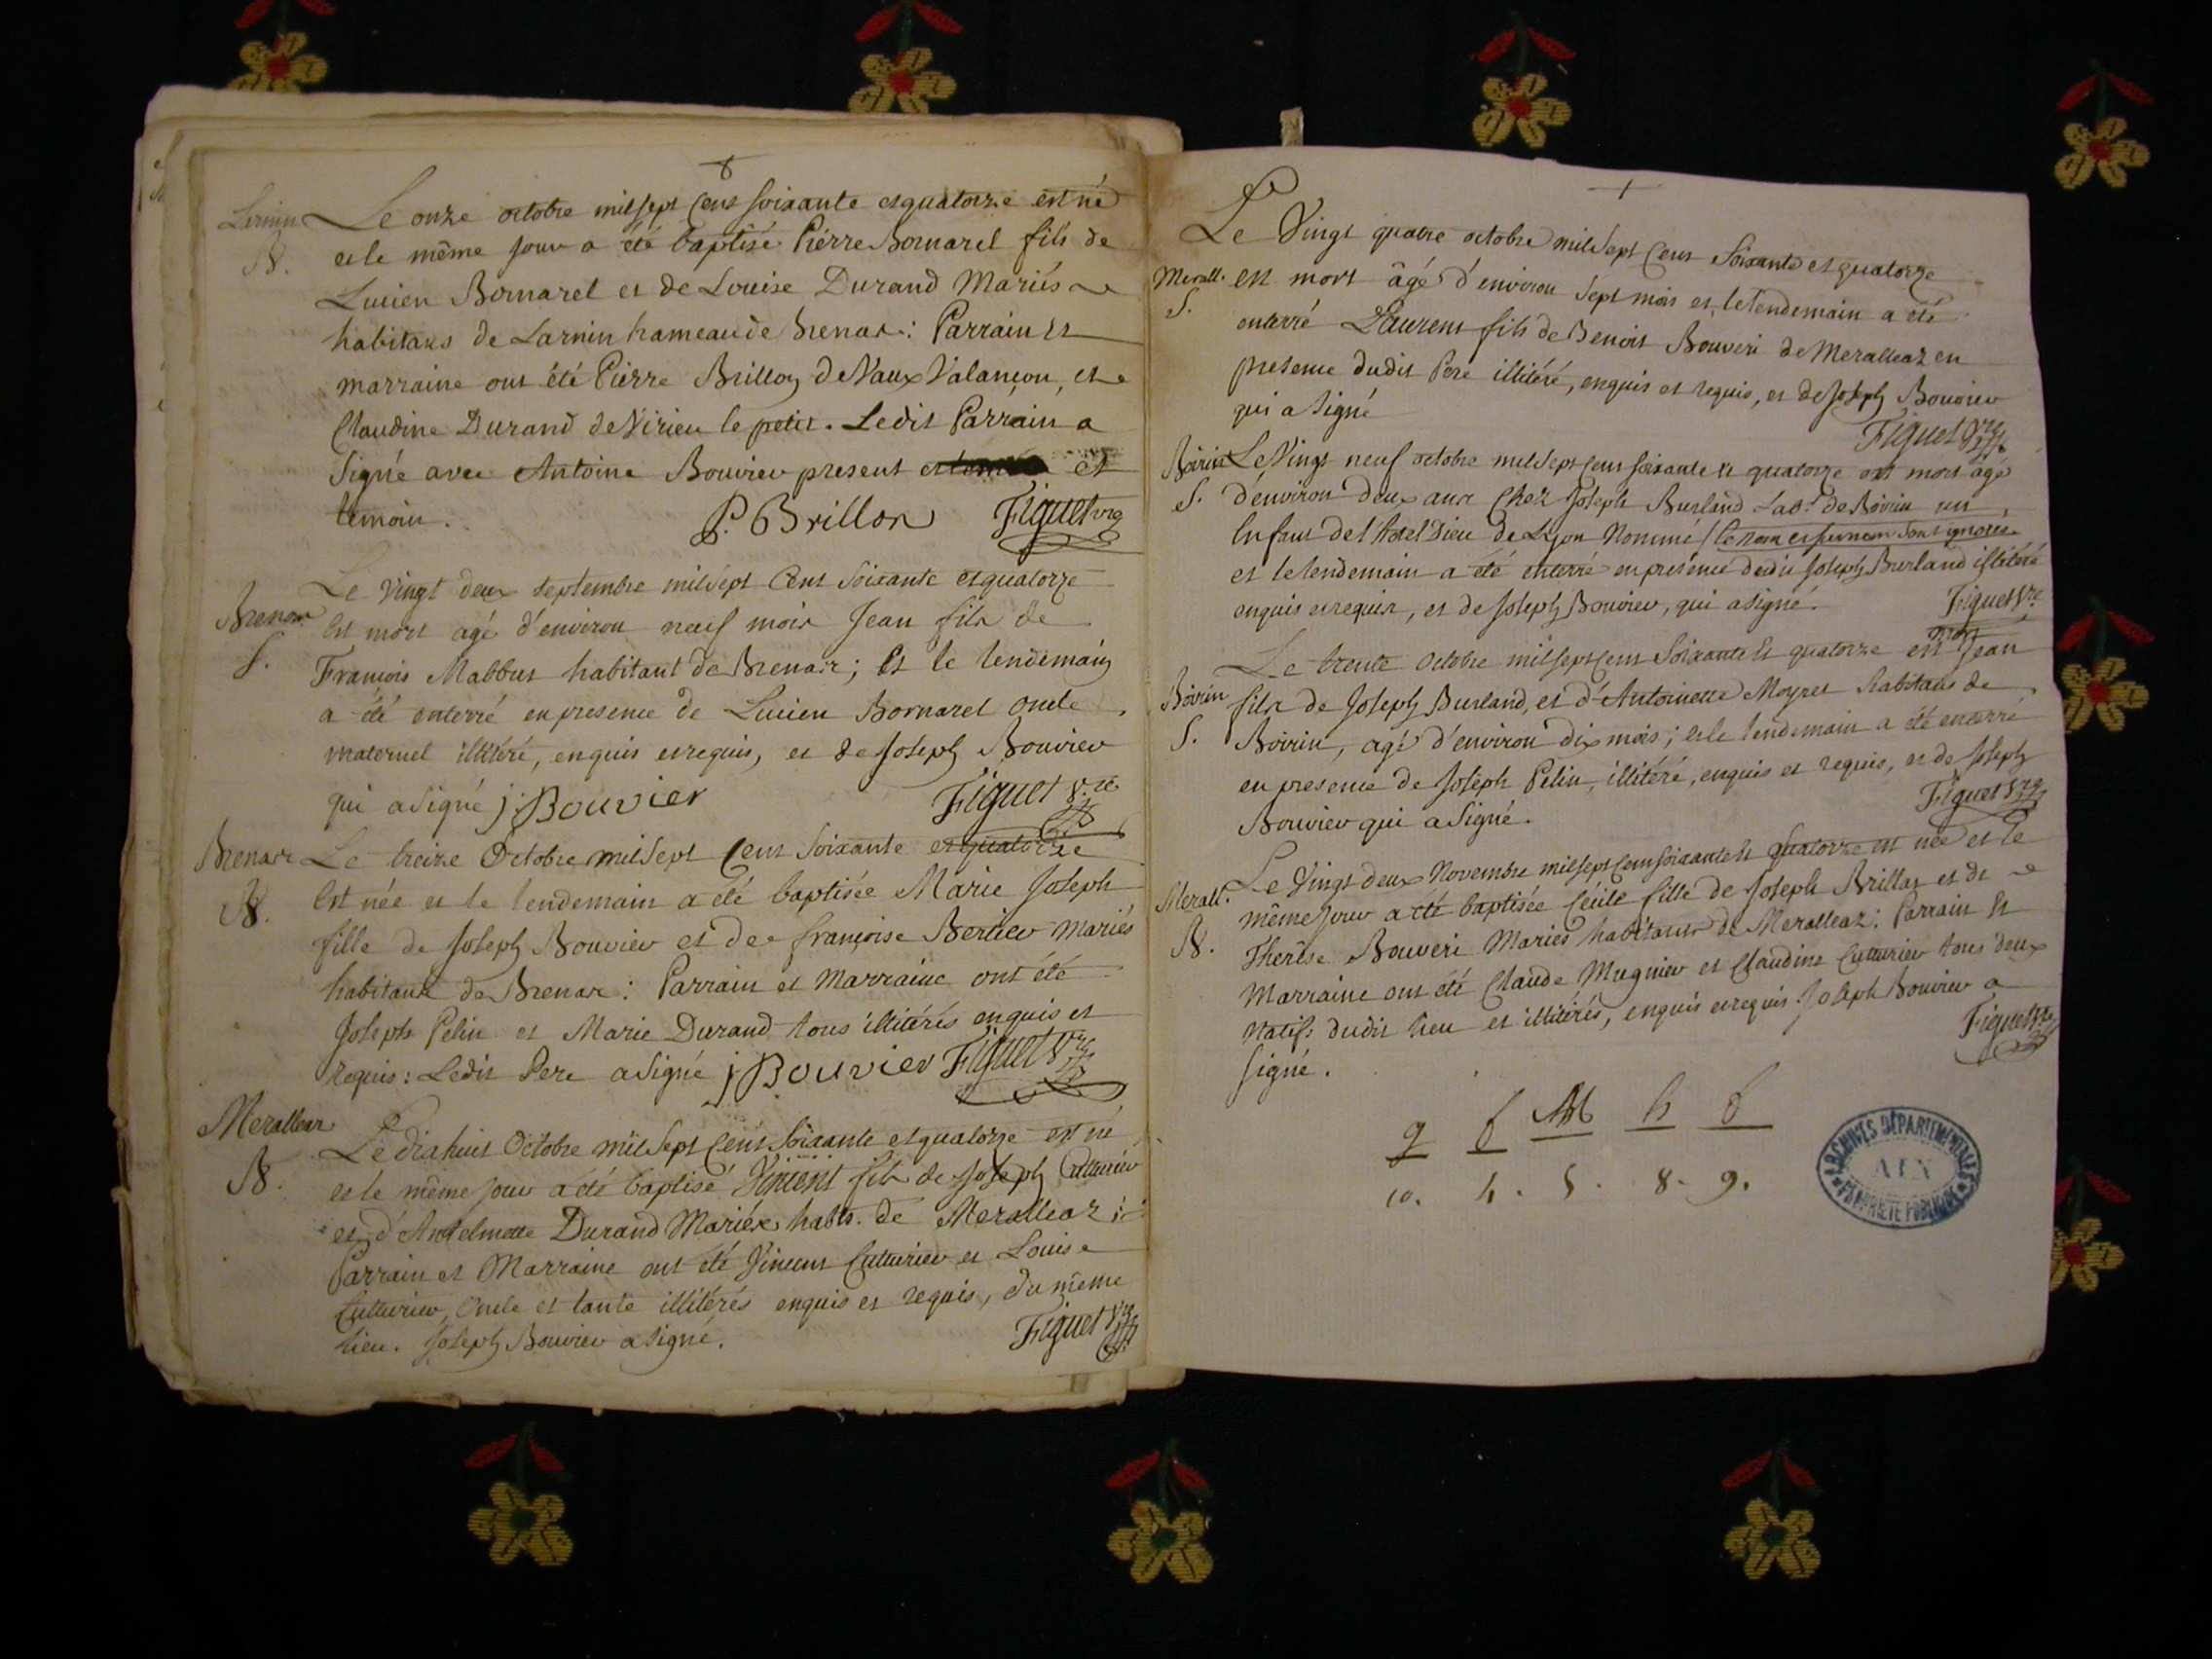 Lernin Le onze octobre mil sept Cent soixante et quatorze est né
B. et le même jour a été baptisé Piérre Bornarel fils de
Lucien Bornarel et de Louise Durand Mariés
habitans de Larnin hameau de Brenar: Parrain et
marraine ont été Pierre Brillon de Vaux Valançon, et
Claudine Durand de Virieu le petit. Ledit Parrain a
Signé avec Antoine Bouvier present et
temoin. P. Brillon Figuet vre
Le vingt deux septembre mil sept Cent Soixante et quatorze
Brenar Est mort agé d'environ neuf mois Jean fils de
S. François Mabbut habitant de Brenar; Et le lendemain
a été enterré en presence de Lucien Bornarel oncle
maternel illitéré, enquis et requis, et de Joseph Bouvier
qui a signé j Bouvier Figuet v.re
Brenar Le treize Octobre mil sept Cent Soixante et quatorze
B. Est née et le lendemain a été baptisée Marie Joseph
fille de Joseph Bouvier et de françoise Bertier mariés
habitans de Brenar: Parrain et Marraine ont été
Joseph Pelin et Marie Durand tous illitérés enquis et
requis: Ledit Pere a signé j Bouvier Figuet vre
Merallear
Le dix huit Octobre mil sept Cent Soixante et quatorze est né
B. et le même jour a été baptisé Vincent fils de Joseph Cutturier
et d'Antelmette Durand Mariés habts. de Merallear;
Parrain et Marraine ont été Vincent Cutturier et Louise
Cutturier, Oncle et tante illitérés enquis et requis, du même
lieu. Joseph Bouvier a signé. Figuet vre
Le Vingt quatre octobre mil sept Cent Soixante et quatorze
Merall. est mort âgé d'environ sept mois et le lendemain a été
S. enterré Laurent fils de Benoit Bouveri de Merallear en
presence dudit Pere illitéré, enquis et requis, et de Joseph Bouvier
qui a signé Figuet vre
Boirin Le Vingt neuf octobre mil sept cent soixante et quatorze est mort agé
S. d'environ deux ans Chez Joseph Burland Labr. de Boirin un
Enfant de l'hotel Dieu de Lyon Nommé / le nom et surnom sont ignorés
et le lendemain a été enterré en présence dudit Joseph Burland illitéré
enquis et requis, et de Joseph Bouvier, qui a signé. Figuet vre
mort
Le trente Octobre mil sept cent Soixante et quatorze est Jean
Boirin fils de Joseph Burland, et d'Antoinette Moyret habitans de
S. Boirin, agé d'environ dix mois; et le lendemain a été enterré
en presence de Joseph Pelin, illitéré, enquis et requis, et de Joseph
Bouvier qui a Signé. Figuet vre
Le Vingt deux Novembre mil sept cent soixante et quatorze est née et le
Merall. même jour a été baptisée Cécile fille de Joseph Brillat et de
B. Therése Bouveri Mariés habitans de Merallear: Parrain et
Marraine ont été Claude Mugnier et Claudine Cutturier tous deux
Natifs dudit lieu et illitérés, enquis et requis. Joseph Bouvier a
signé. Figuet vre
10. 4. 5. 8. 9.
ARCHIVES DÉPARTEMENTALES
AIN
PROPRIÉTÉ PUBLIQUE